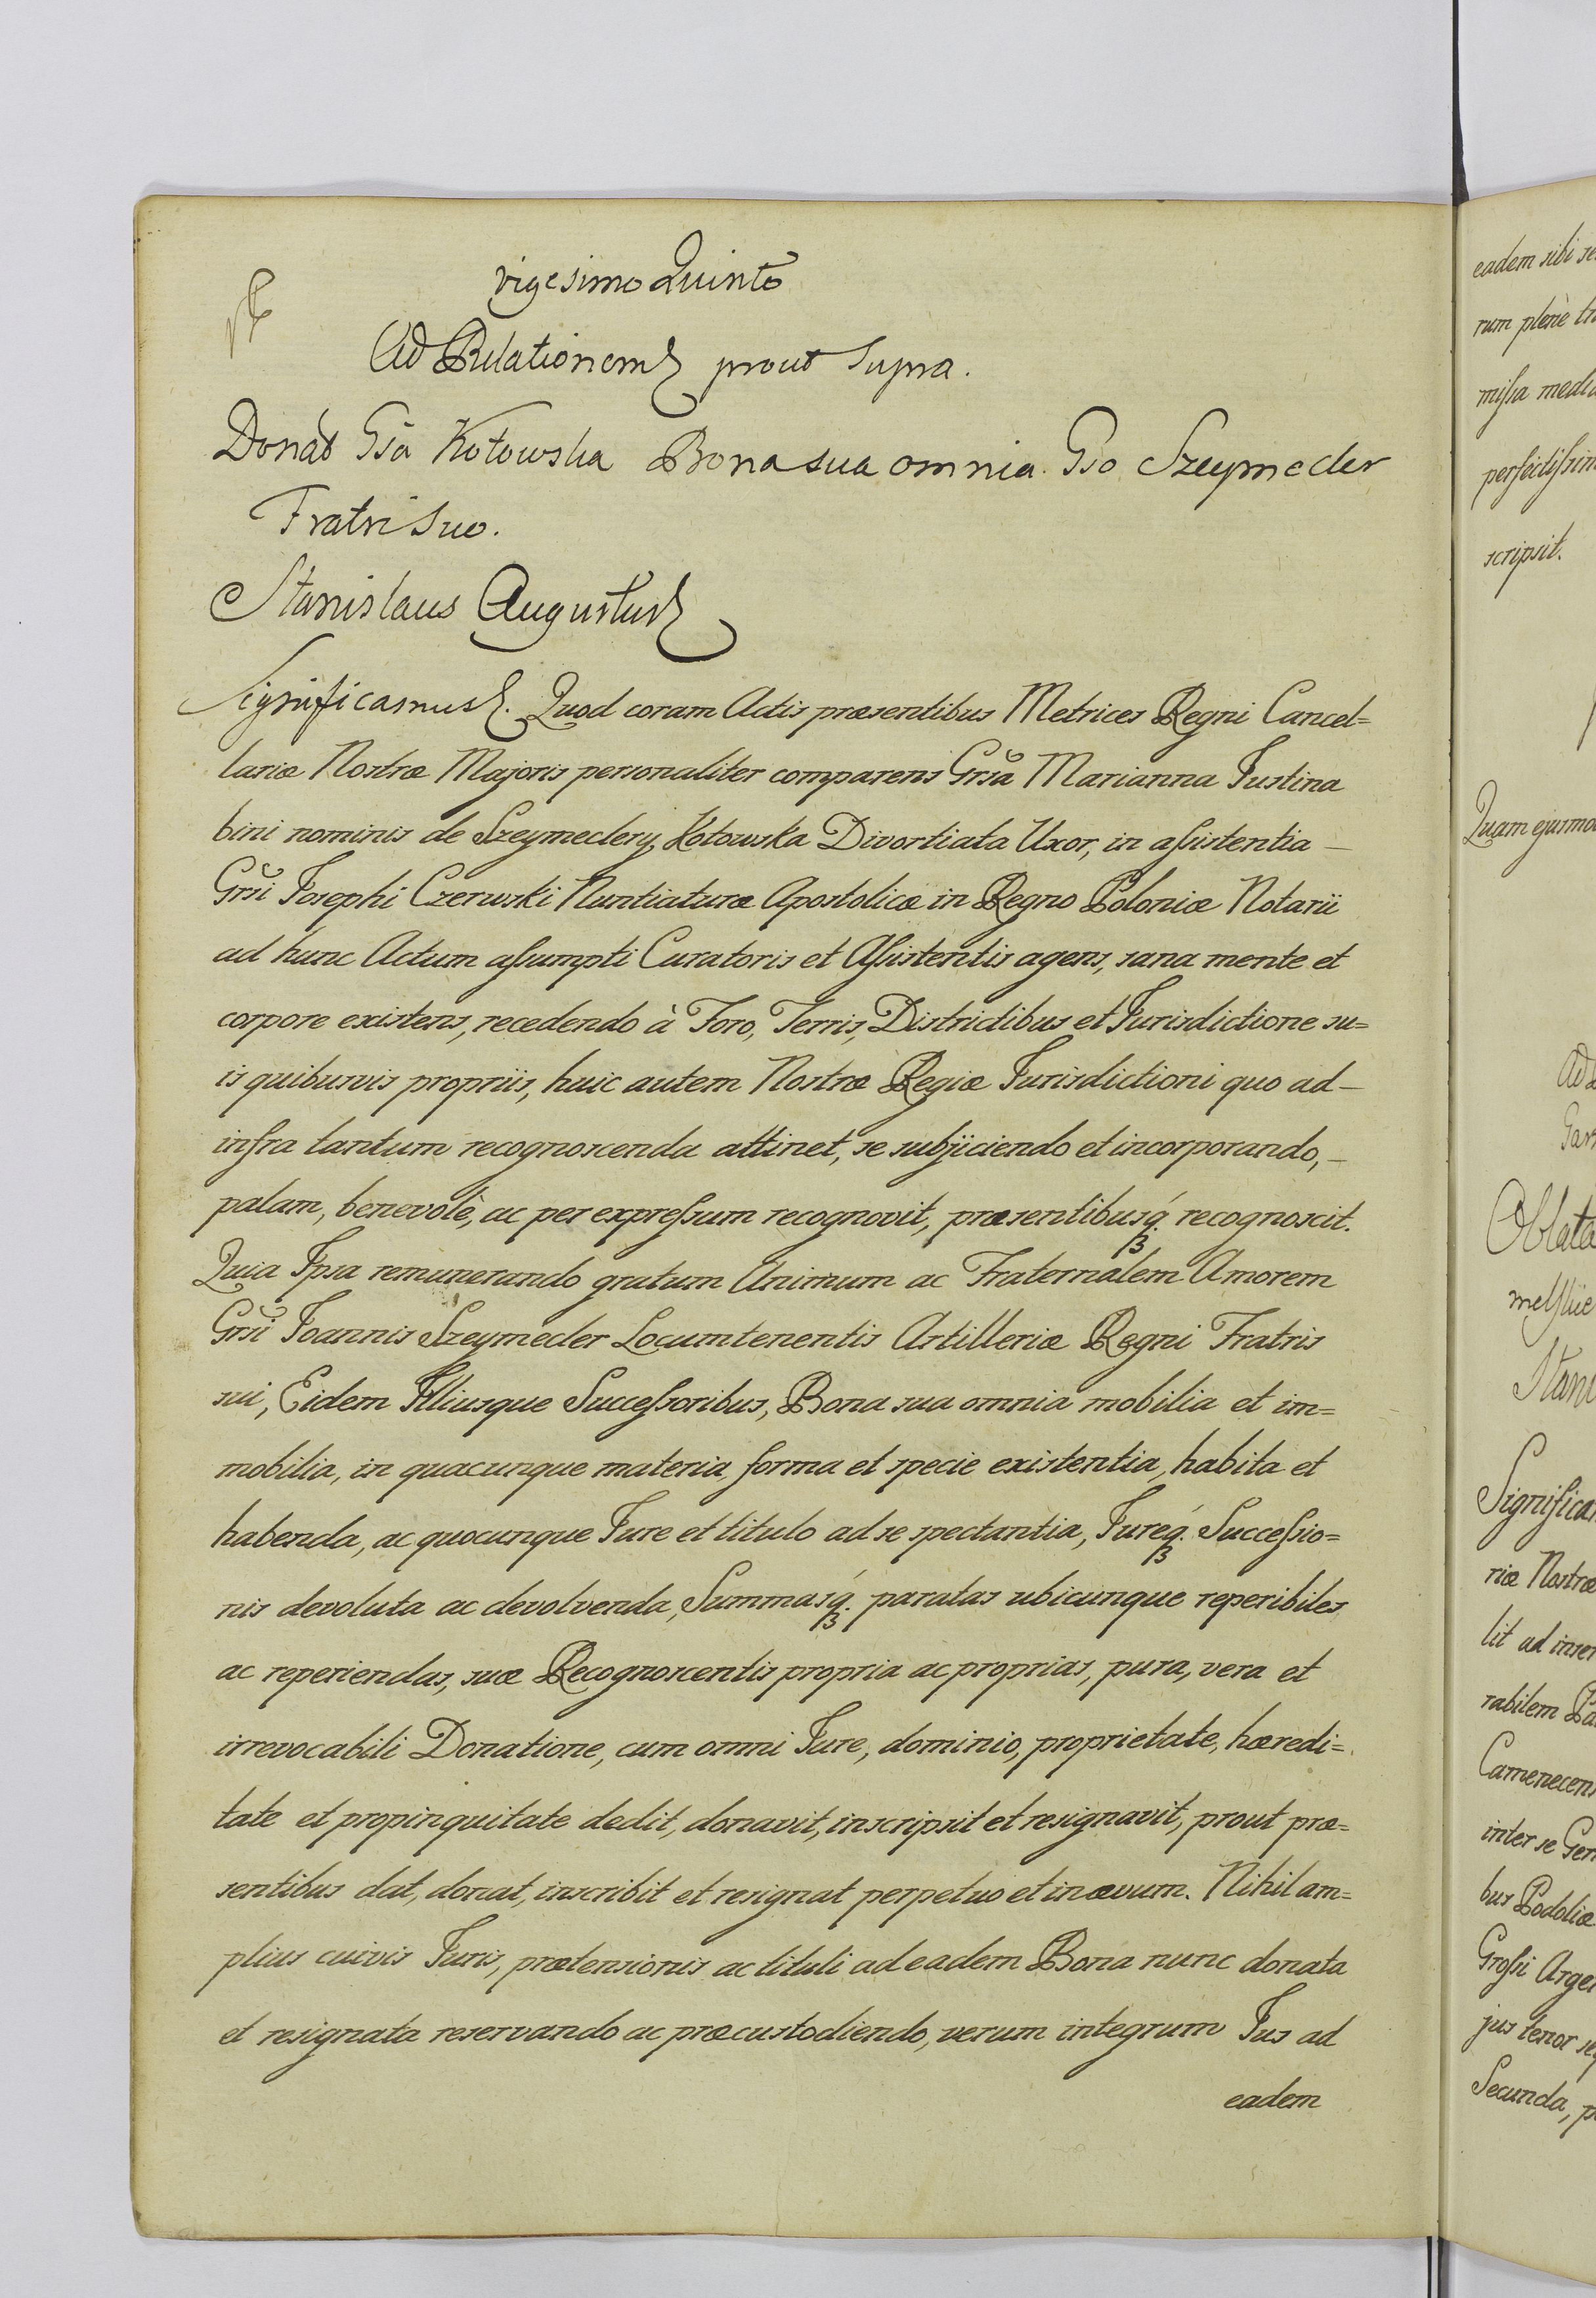 vigesimo Quinto
Ad Relationem prout supra.
Donat Gsa Kotowska Bona sua omnia Gso Szeymeder
Fratri Suo.
Stanislaus Augustus
Significamus. Quod coram Actis præsentibus Metrices Regni Cancel=
lariæ Nostræ Majoris personaliter comparens Grsa Marianna Justina
bini nominis de Szeymedery, Kotowska Divortiata Uxor, in assistentia –
Grsi Josephi Czerwski Nuntiaturæ Apostolicæ in Regno Poloniæ Notarii
ad hunc Actum assumpti Curatoris et Assistentis agens, sana mente et
corpore existens, recedendo à Foro, Terris, Districtibus et Jurisdictione su=
is quibusvis propriis, huic autem Nostræ Regiæ Jurisdictioni quo ad –
infra tantum recognoscenda attinet, se subjiciendo et incorporando, –
palam, benevolè, ac per expressum recognovit, præsentibusq́ꝫ. recognoscit.
Quia Ipsa remunerando gratum Animum ac Fraternalem Amorem
Grsi Joannis Szeymeder Locumtenentis Artilleriæ Regni Fratris
sui, Eidem Illiusque Successoribus, Bona sua omnia mobilia et im=
mobilia, in quacunque materia, forma et specie existentia, habita et
habenda, ac quocunque Jure et titulo ad se spectantia, Jureq́ꝫ. Successio=
nis devoluta ac devolvenda, Summasq́ꝫ. paratas ubicunque reperibiles
ac reperiendas, suæ Recognoscentis propria ac proprias, pura, vera et
irrevocabili Donatione, cum omni Jure, dominio, proprietate, hæredi=
tate et propinquitate dedit, donavit, inscripsit et resignavit, prout præ=
sentibus dat, donat, inscribit et resignat perpetuo et in ævum. Nihil am=
plius cuivis Juris, prætensionis ac tituli ad eadem Bona nunc donata
et resignata reservando ac præcustodiendo, verum integrum Jus ad
eadem
eadem sibi
rum plenè
missa
scripsit.
Quam
Oblata
riæ Nostræ
lit ad
inter se
bus Podoliæ
Grossi
jus tenor
Secunda,